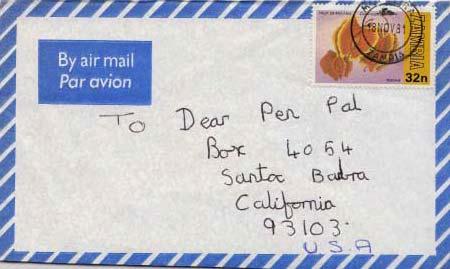 By air mail
Par avion
ZAMBIA
18 NOV 81
ZAMBIA
32n
To Dear Pen Pal
Box 4054
Santa Babra
California
93103.
U.S.A